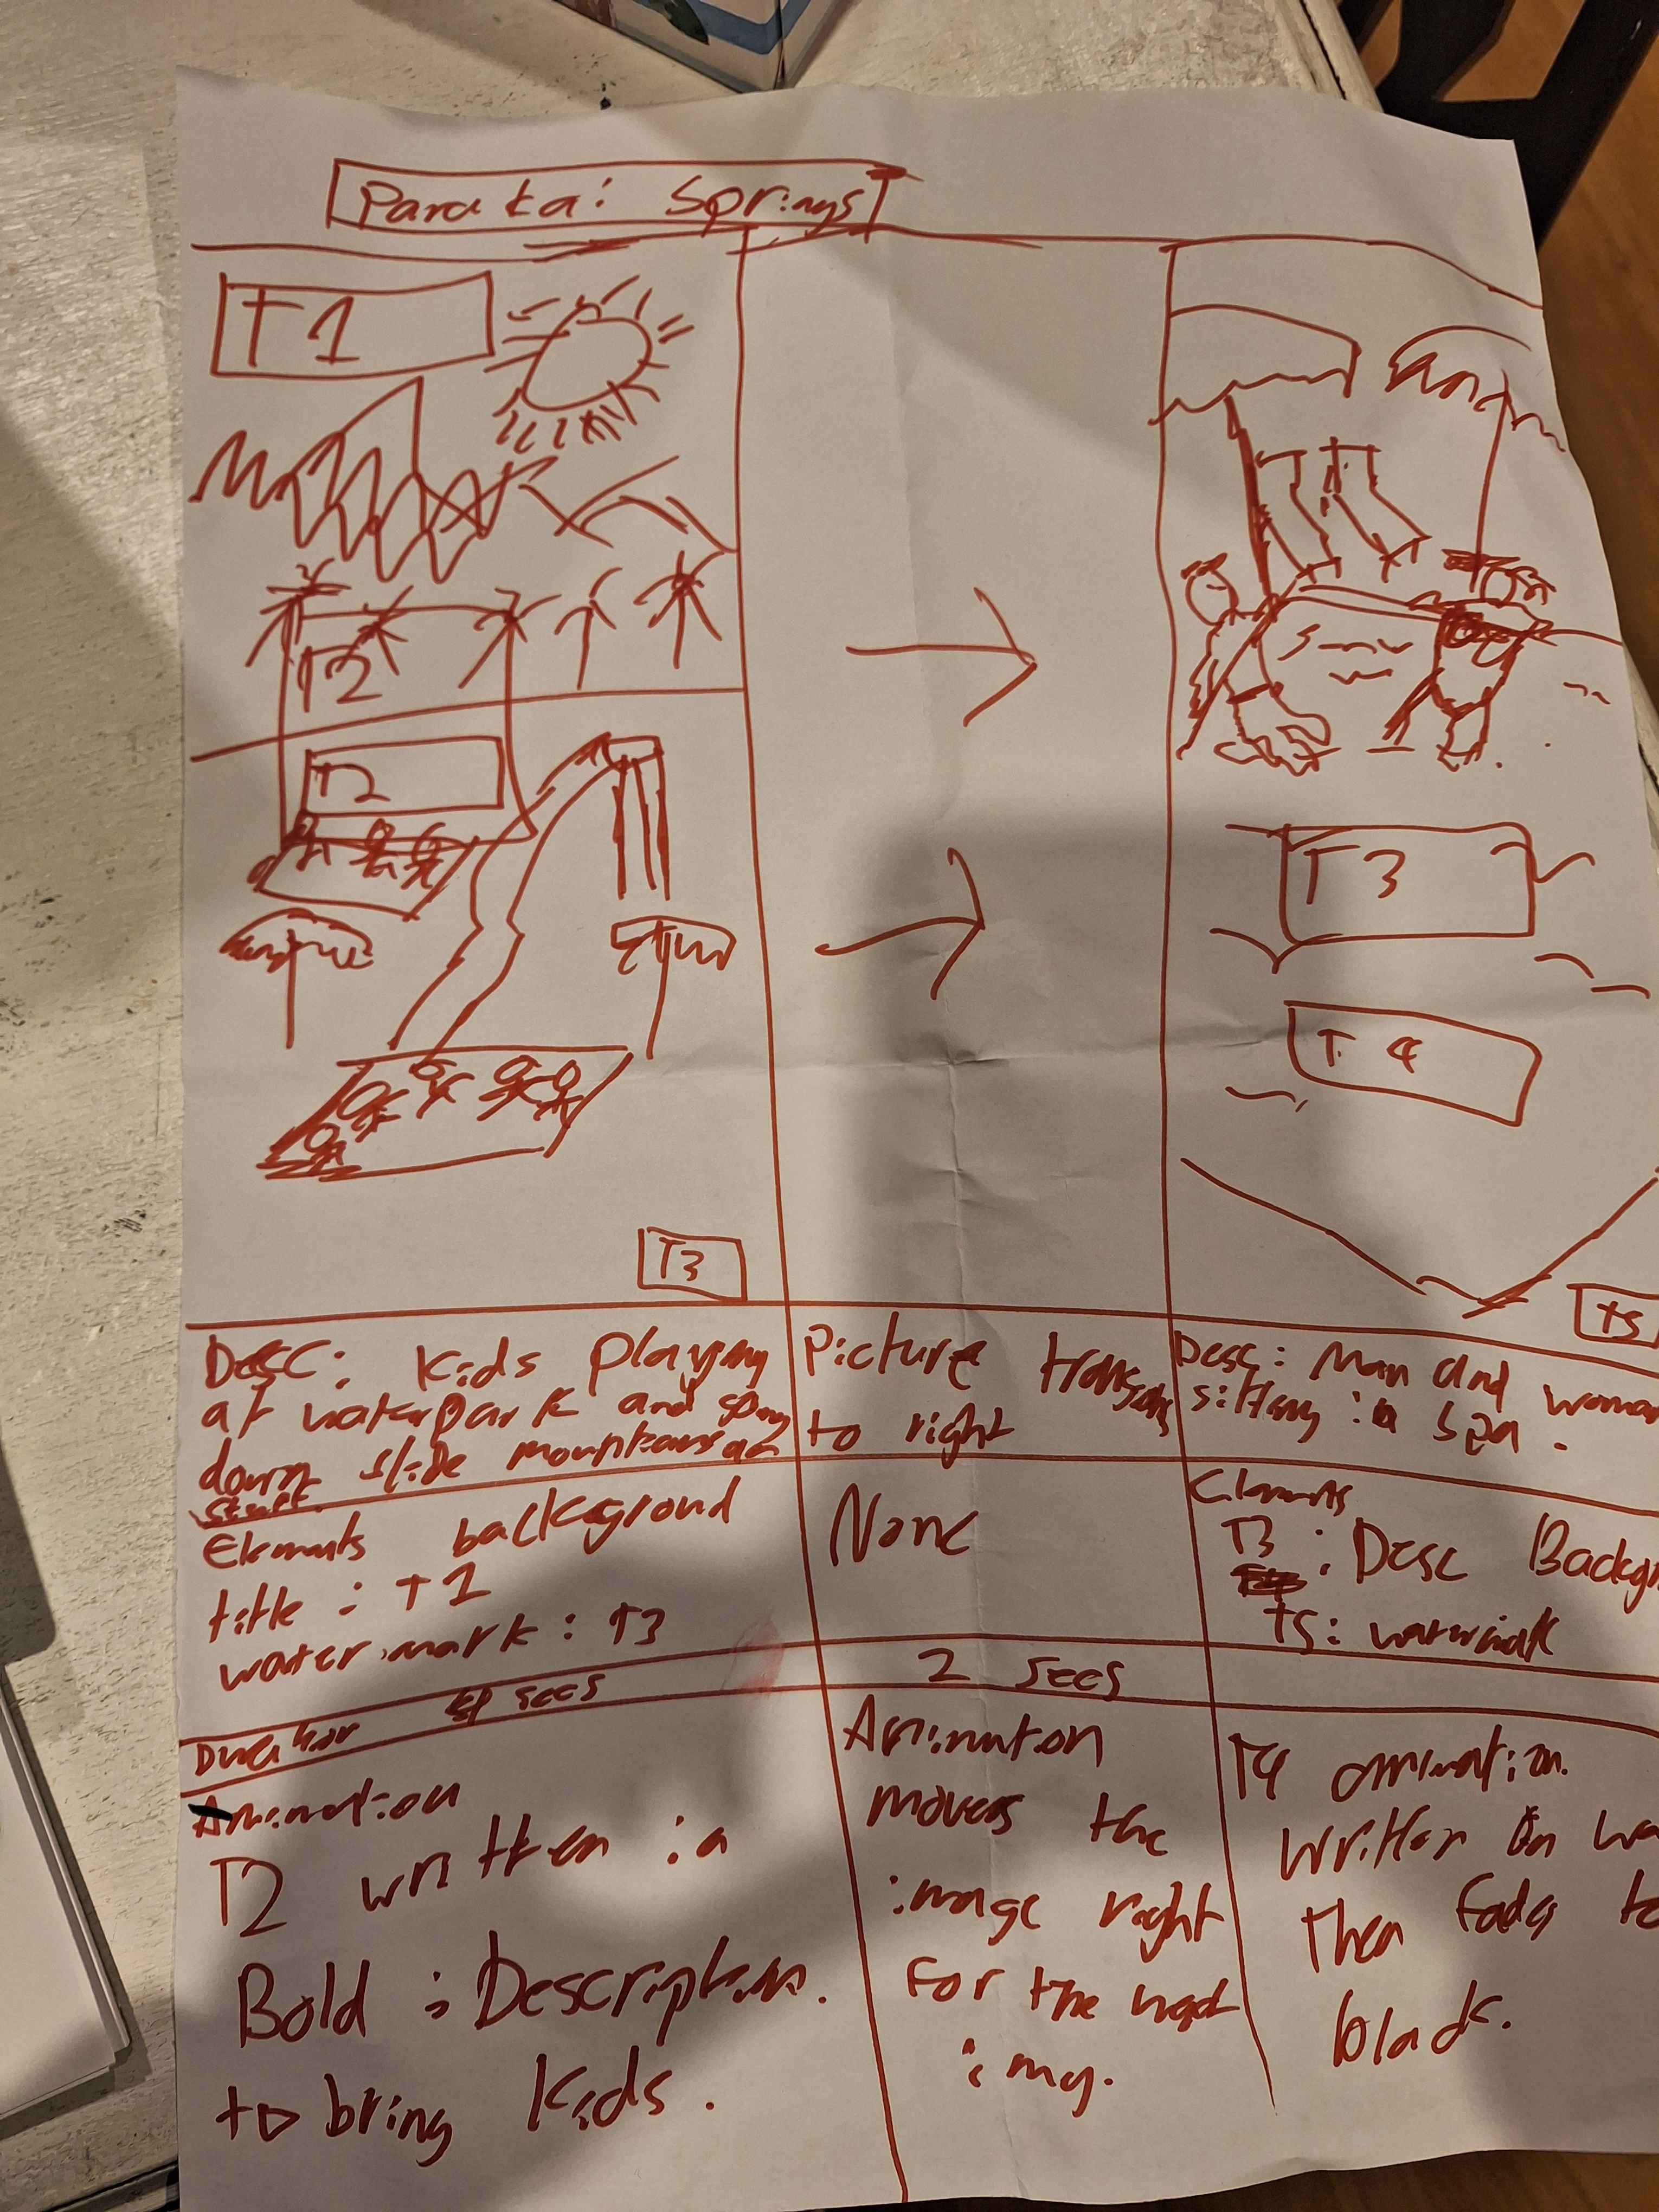 Parakai Springs
T1
T2
T2
T3
T3
T4
T5
Desc: Kids Playing
at waterpark and
down slide mountains
stuff.
Elements background
title : T1
watermark : T3
Duration secs
Animation
T2 written in
Bold : Description.
to bring Kids.
Picture
to right
None
2 secs
Animation
moves the
image right
For the next
img.
Desc: Man and woman
sitting in Spa.
Elements
T3 : Desc
T5: watermark
T4 animation.
Written in
Then fades to
black.